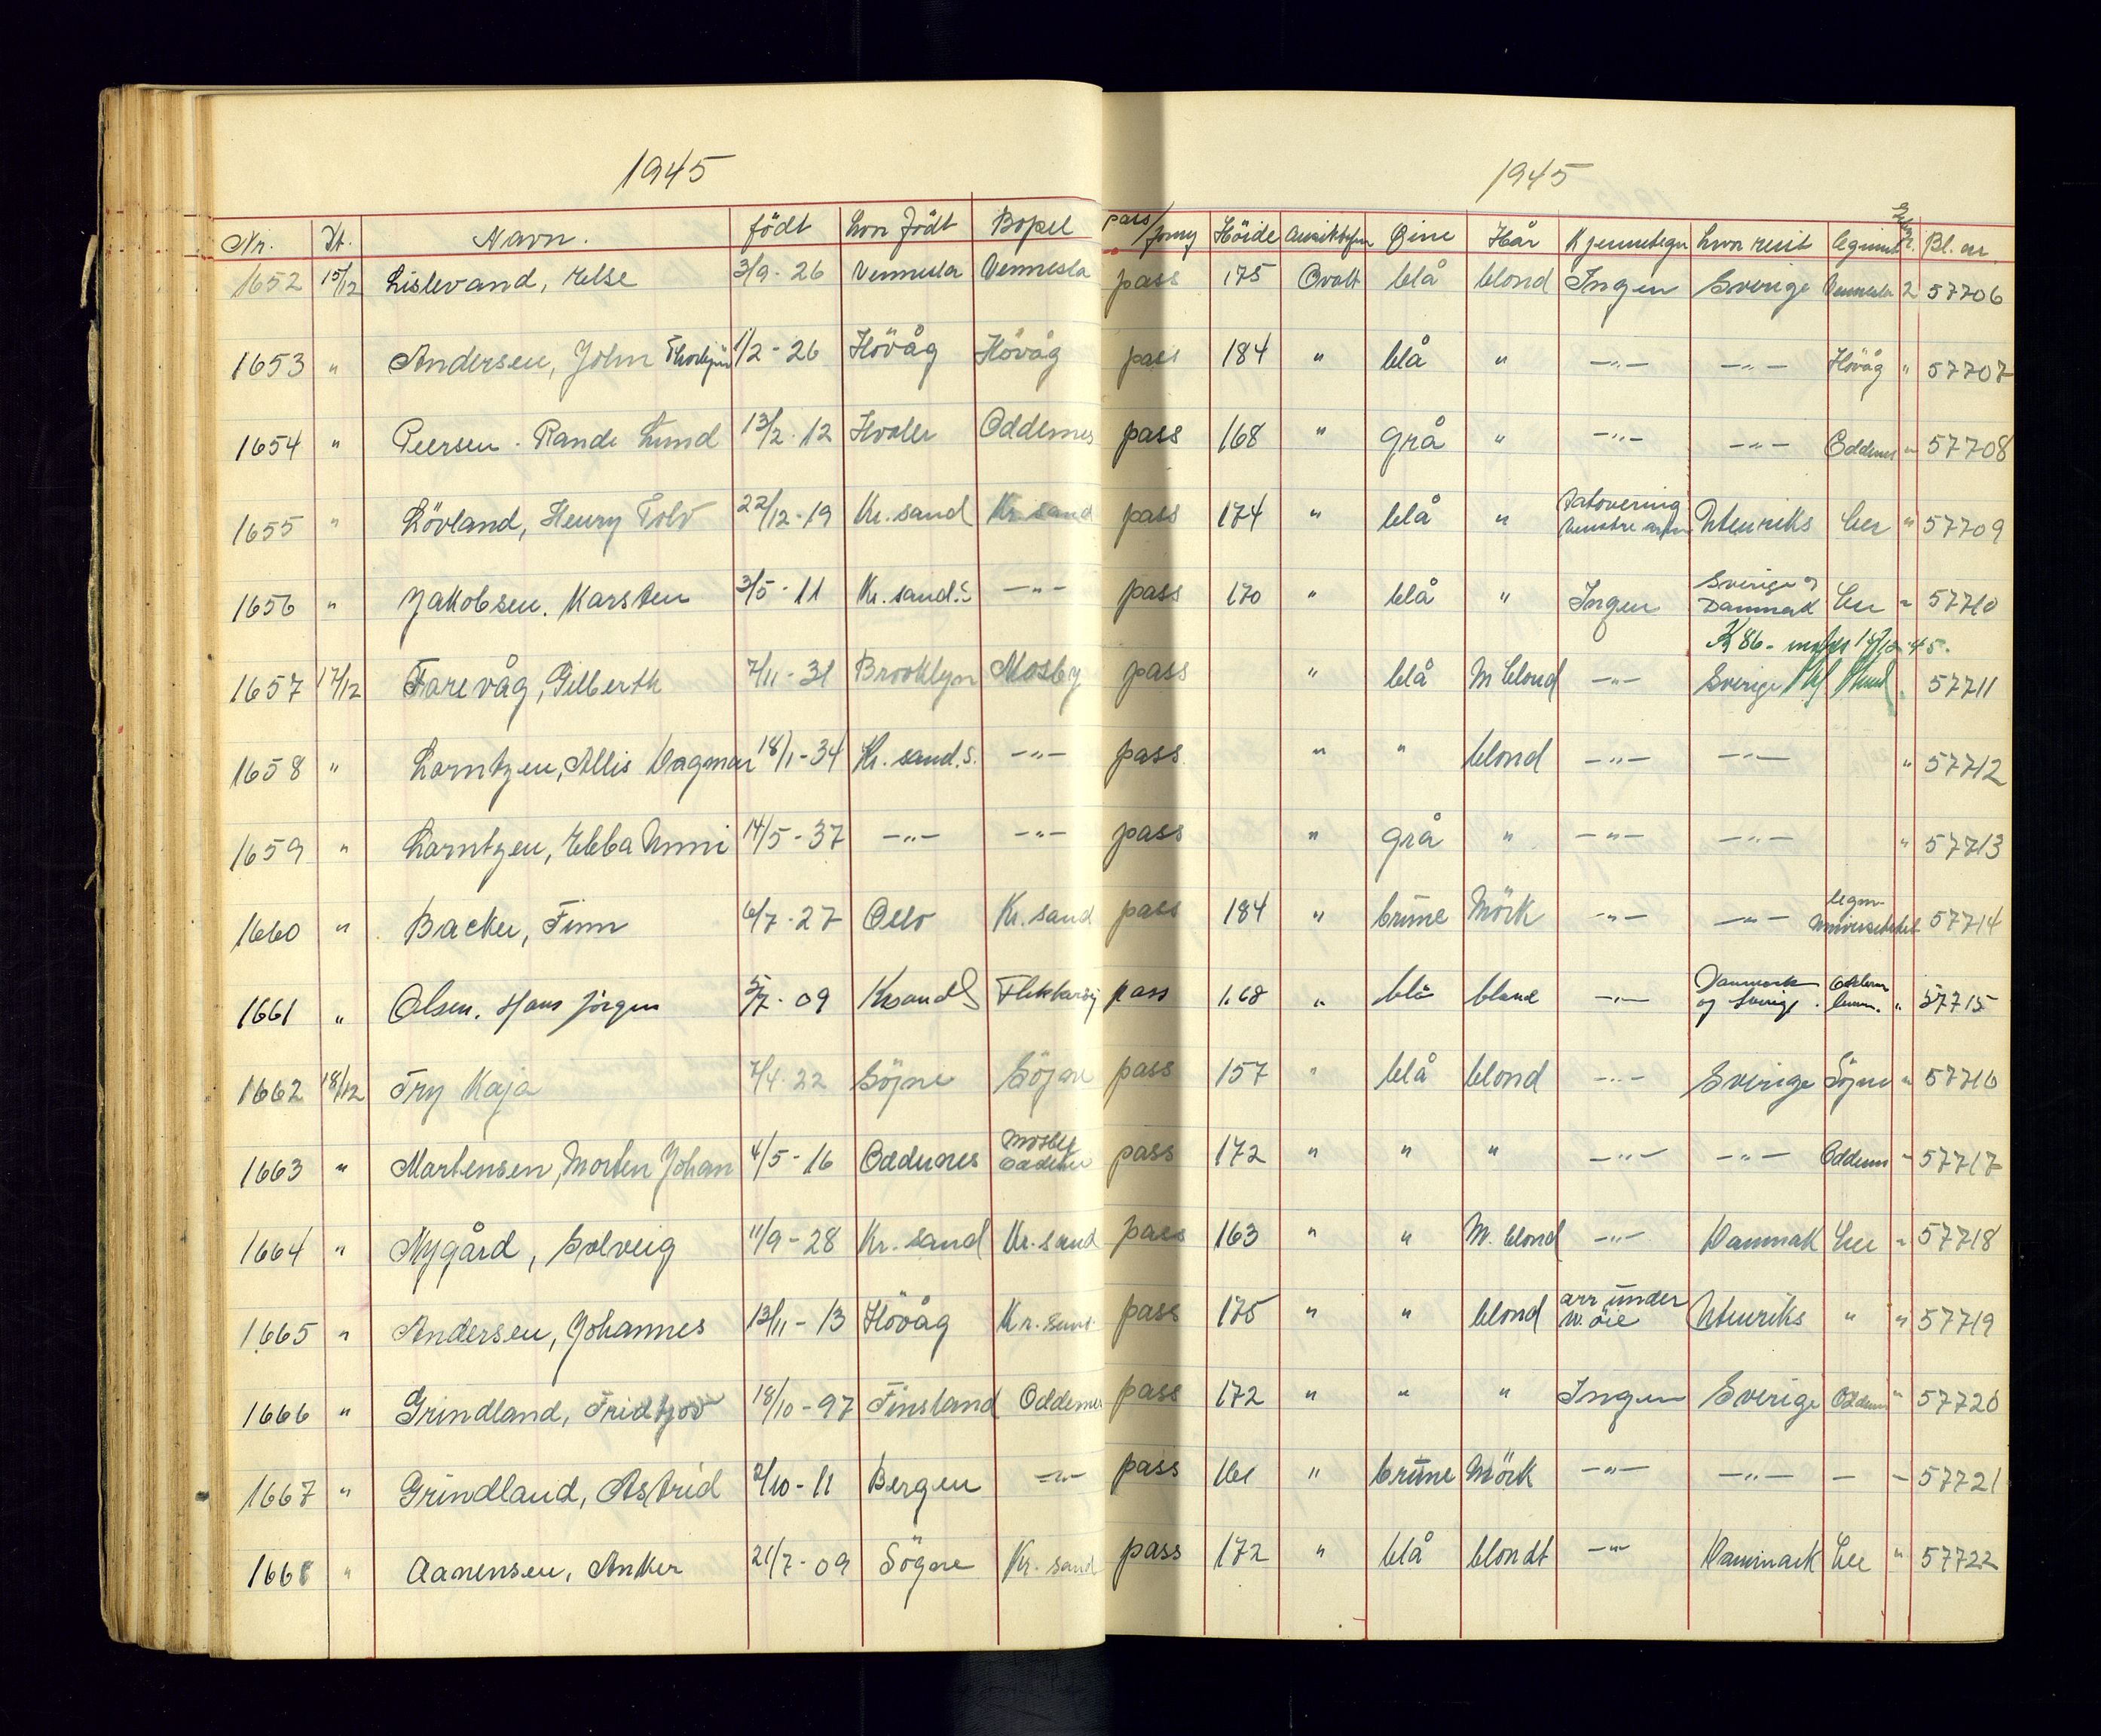 1945 1945
Nr. Dt. Navn. født hvor født Bopel pass/ Höide Ansiktsform Öine Hår Kjennetegn hvor reist legimit Bl. nr.
1652 15/12 Lislevand, Else 3/9-26 Vennesla Vennesla pass 175 Ovalt blå blond Ingen Sverige Vennesla 2 57706
1653 " Andersen, John 1/2-26 Hövåg Hövåg pass 184 " blå " -"- -"- Hövåg " 57707
1654 " Peersen. Randi Lund 13/2-12 Hvaler Oddernes pass 168 " grå " -"- -"- Oddernes " 57708
1655 " Lövland, Henry Tolv 22/12-19 Kr.sand Kr.sand pass 174 " blå " Tatovering venstre arm Utenriks her " 57709
1656 " Jakobsen. Karsten 3/5-11 Kr.sand.S -"- pass 170 " blå " Ingen Sverige og Danmark her " 57710
1657 17/12 Farevåg, Gilberth 7/11-31 Brooklyn Mosby pass " blå M blond -"- Sverige 57711
1658 " Lorntzen, Allis Dagmar 18/1-34 Kr.sand.S. -"- pass " " blond -"- -"- " 57712
1659 " Lorntzen, Ebba Unni 14/5-37 -"- -"- pass " grå " -"- -"- " 57713
1660 " Backer, Finn 6/7-27 Oslo Kr.sand pass 184 " brune Mörk -"- -"- legm. Universitetet 57714
1661 " Olsen. Hans Jörgen 5/7-09 Krsand S Flekkeröy pass 1.68 " blå blond -"- Danmark og Sverige " 57715
1662 18/12 Try Kaja 7/4-22 Söjne Söjne pass 157 " blå blond -"- Sverige Sögne " 57716
1663 " Martensen, Morten Johan 4/5-16 Oddernes Mosby Oddernes pass 172 " " " -"- -"- Oddernes " 57717
1664 " Nygård, Solveig 11/9-28 Kr.sand Kr.sand pass 163 " " M. blond -"- Danmark her " 57718
1665 " Andersen, Johannes 13/11-13 Hövåg Kr.sand pass 175 " " blond arr under v. öie Utenriks " " 57719
1666 " Grindland, Fridtjov 18/10-97 Finsland Oddernes pass 172 " " " Ingen Sverige Oddernes " 57720
1667 " Grindland, Astrid 2/10-11 Bergen -"- pass 161 " brune Mörk -"- -"- - - 57721
1668 " Aanensen, Anker 21/7-09 Sögne Kr.sand pass 172 " blå blondt -"- Danmark her " 57722